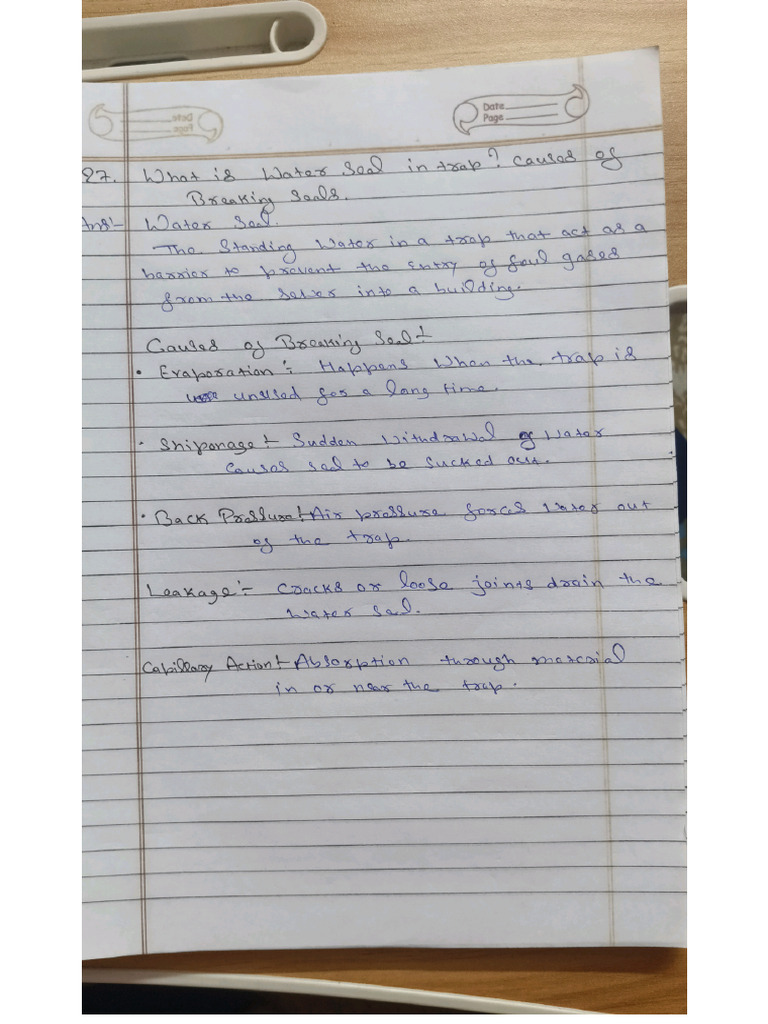 Date
Page
27. What is Water Seal in trap? Causes of
Breaking Seals.
Ans:- Water Seal.
The Standing Water in a trap that act as a
barrier to prevent the Entry of foul gases
from the sewer into a building.
Causes of Breaking Seal:-
• Evaporation:- Happens When the trap is
unused for a long time.
• Shiponage:- Sudden Withdrawal of Water
Causes seal to be Sucked out.
• Back Pressure:- Air pressure forces Water out
of the trap.
Leakage:- Cracks or loose joints drain the
Water seal.
Capillary Action:- Absorption through material
in or near the trap.